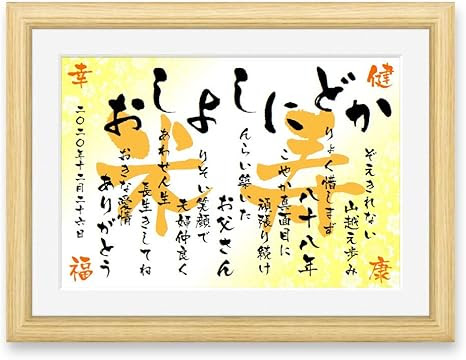 健康
米寿
かどにし よしお
ぞえきれない
山越え歩み
りょく惜しまず
八十八年
こやか真面目に
頑張り続け
んらい築いた
お父さん
りそい笑顔で
夫婦仲良く
あわせ人生
長生きしてね
おきな愛情
ありがとう
二〇二〇年十二月二十六日
幸福